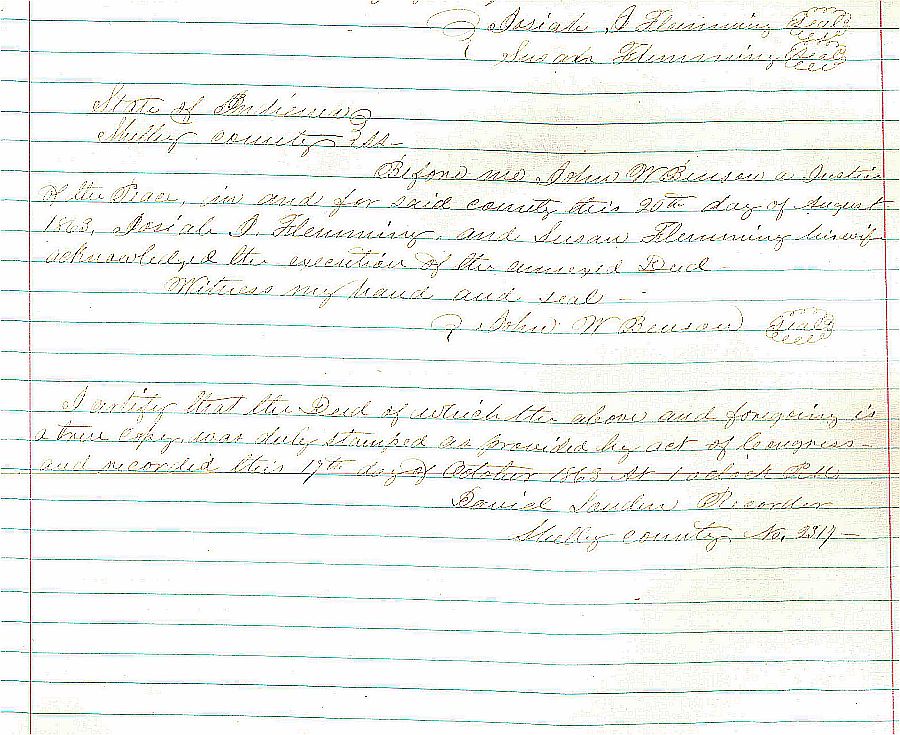 Josiah J Flemming Seal
Susan Flemming Seal
State of Indiana
Shelby county ss
Before me John W Benson a Justice
of the Peace, in and for said county this 20th day of August
1863, Josiah J. Flemming, and Susan Flemming his wife
acknowledged the execution of the annexed Deed
Witness my hand and seal —
John W Benson Seal
I certify that the Deed of which the above and foregoing is
a true copy, was duly stamped as provided by act of Congress —
and recorded this 19th day of October 1863 At 1 oclock P.M.
Recorder
Shelby county No. 2317 —